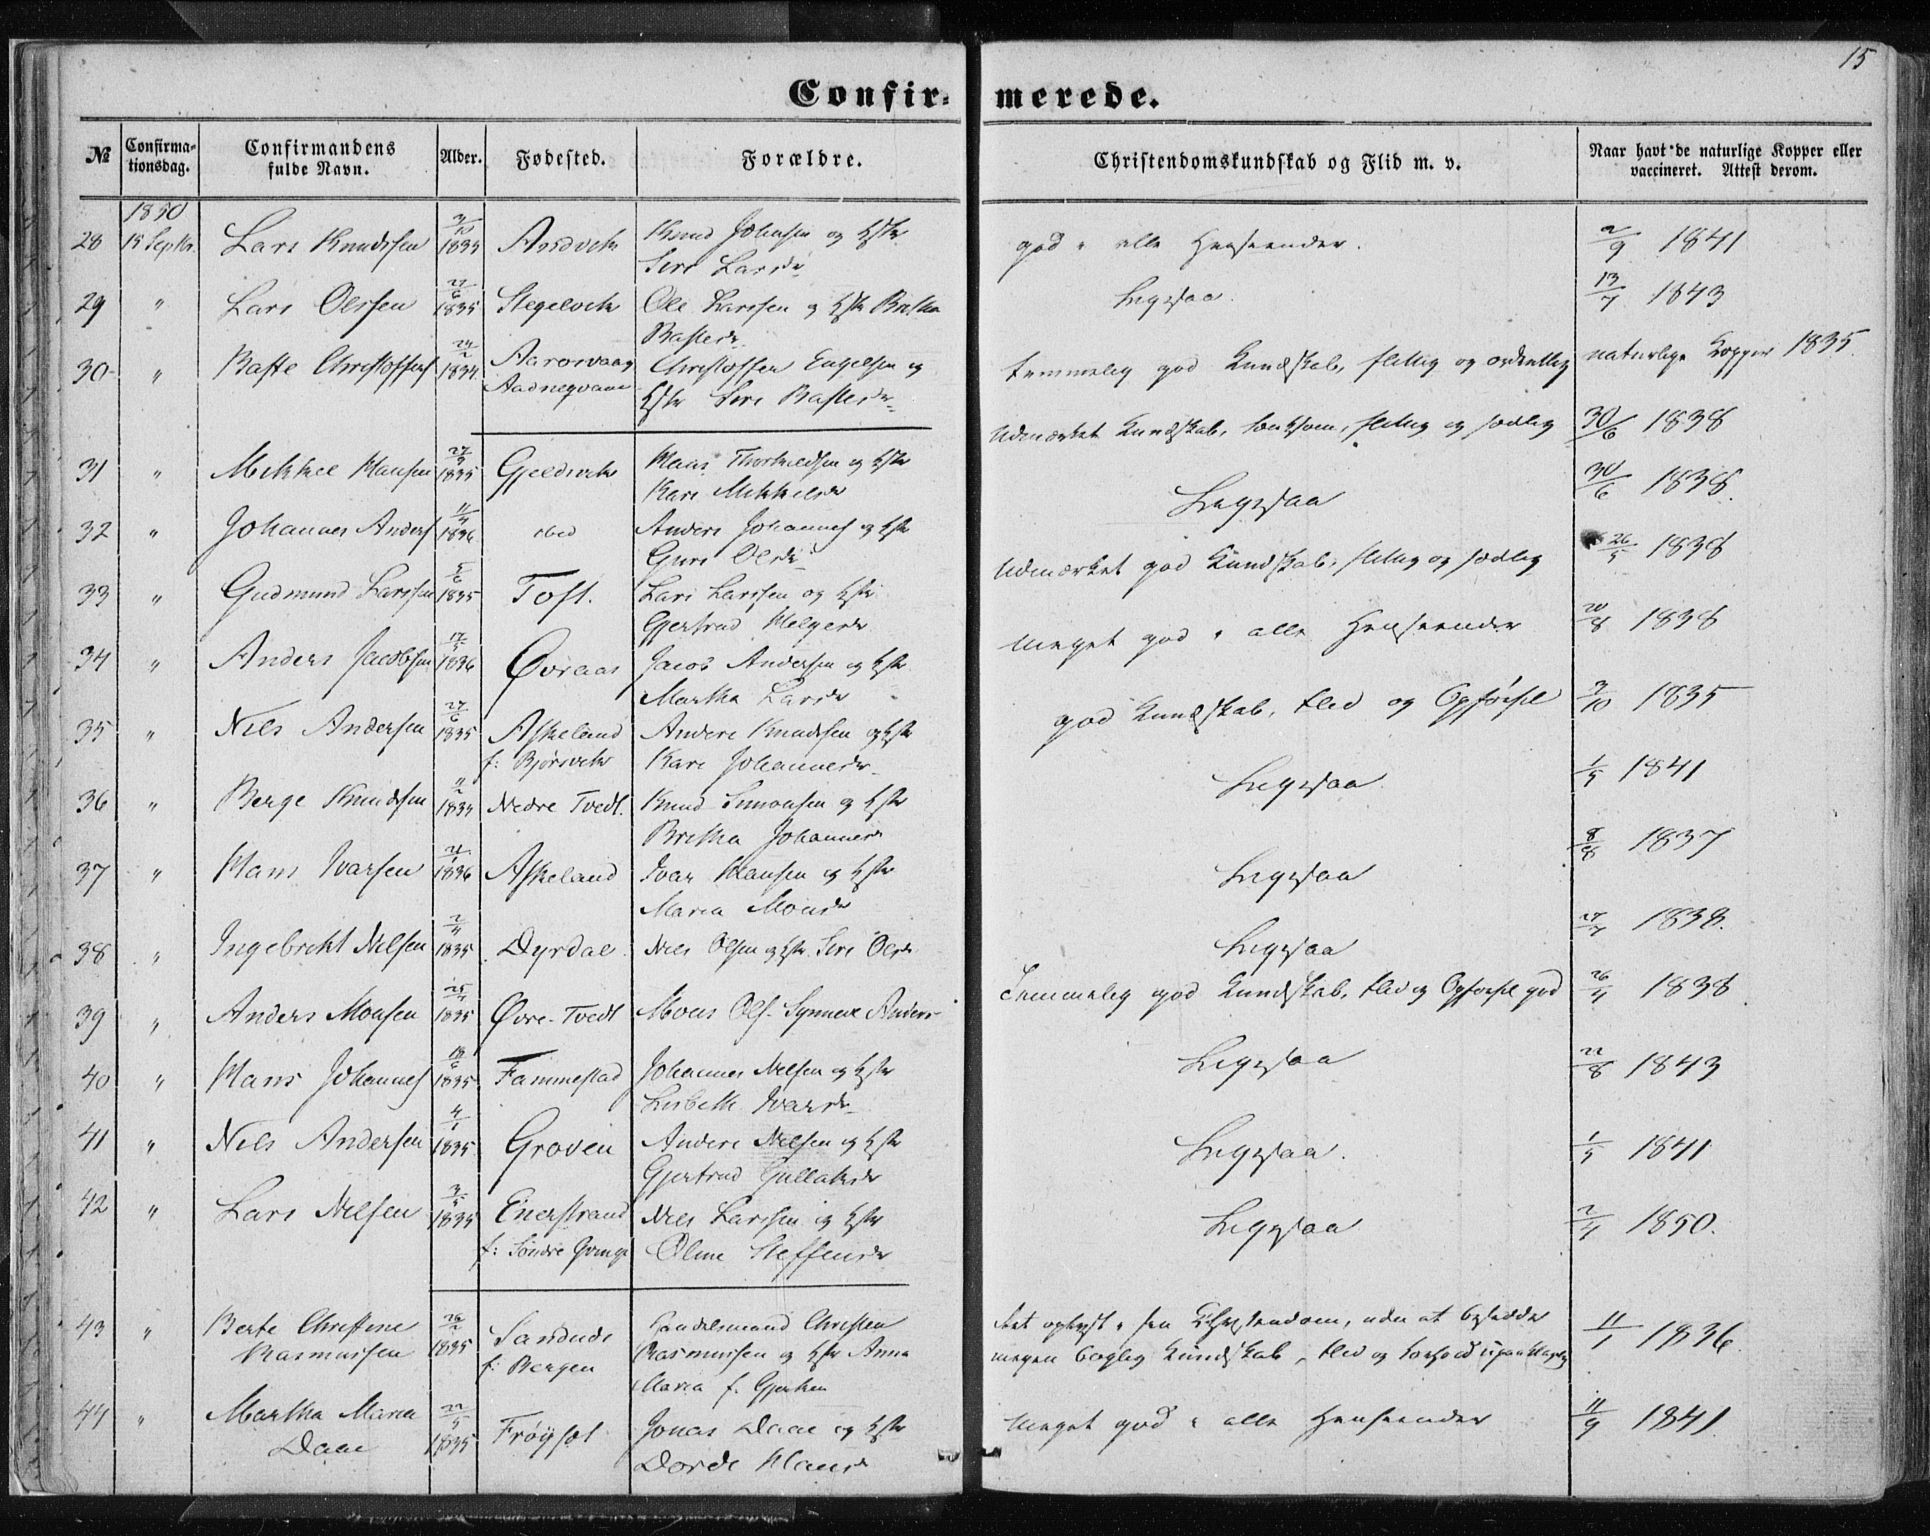 15
Confir- merede.
№ Confirma-tionsdag. Confirmandens fulde Navn. Alder. Fødested. Forældre. Christendomskundskab og Flid m. v. Naar havt de naturlige Kopper eller vaccineret. Attest derom.
1850
28 15 Septbr. Lars Knudsen 3/10 1834 Andvik Knud Johnsen og Hstr god i alle Henseender. 2/9 1841
Siri Larsdr
29 " Lars Olsen 27/6 1835 Stegelvik Ole Larssen og Hstr Britha Ligesaa. 13/7 1843
Bastesdr
30 " Baste Christoffers 24/2 1834 Aarosvaag Christoffer Engelsen og temmelig god Kundskab, flittig og ordentlig naturlige Kopper 1835.
Hstr Siri Bastesdr
31 " Mikkel Hansen 27/3 1835 Gjeldsvik Hans Thorkildsen og Hstr Udmærket Kundskab, flittig og sædlig 30/6 1838
Kari Mikkelsdr
32 " Johannes Anders 11/4 1836 ibid Anders Johannes og Hstr Ligesaa 30/6 1838.
Guri Olsdr
33 " Gudmund Larssen 5/6 1835 Toft. Lars Larssen og Hstr Udmærket god Kundskab, flittig og sædlig 26/5 1838
Gjertrud Helgesdr
34 " Anders Jacobsen 17/5 1836 Øvraas Jacob Andersen og Hstr Meget god i alle Henseender 20/8 1838
Martha Larsdr
35 " Nils Andersen 27/6 1835 Askeland Anders Knudsen og Hstr god Kundskab, Flid og Opførsel 3/10 1835
f: Bjørsvik Kari Johannesdr
36 " Berge Knudsen 11/2 1834 Nedre Tvedt. Knud Simonsen og Hstr Ligesaa. 1/5 1841
Britha Johannesdr
37 " Hans Ivarsen 21/1 1836 Askeland Ivar Hansen og Hstr Ligesaa 8/8 1837
Maria Monsdr
38 " Ingebrikt Nilsen 2/4 1835 Dyrdal. Nils Olsen og Hstr Siri Olsdr Ligesaa 27/7 1838.
39 " Anders Monsen 25/4 1835 Øvre-Tvedt Mons Ols- Synneve Anders- Temmelig god Kundskab, Flid og Opførsel god 26/4 1838
40 " Hans Johannes 18/6 1835 Fammestad Johannes Nilsen og Hstr Ligesaa 22/8 1843
Lisbeth Ivarsdr
41 " Nils Andersen 4/1 1835 Groven Anders Nilsen og Hstr Ligesaa. 1/5 1841
Gjertrud Gullaksdr
42 " Lars Nilsen 3/5 1835 Einerstrand Nils Larssen og Hstr Ligesaa 2/4 1850.
f: Søndre Qvinge Oline Steffensdr
43 " Berte Christine 26/2 1835 Handelsmand Christen
Rasmussen f: Bergen Rasmussen og Hstr Anna megen boglig Kundskab, Flid og Forhold 11/1 1836.
Maria f. Gjertsen
44 " Martha Maria 22/4 1835 Frøyset Jonas Daae og Hstr Meget god i alle Henseender 11/9 1841
Daae Dorde Hansdr